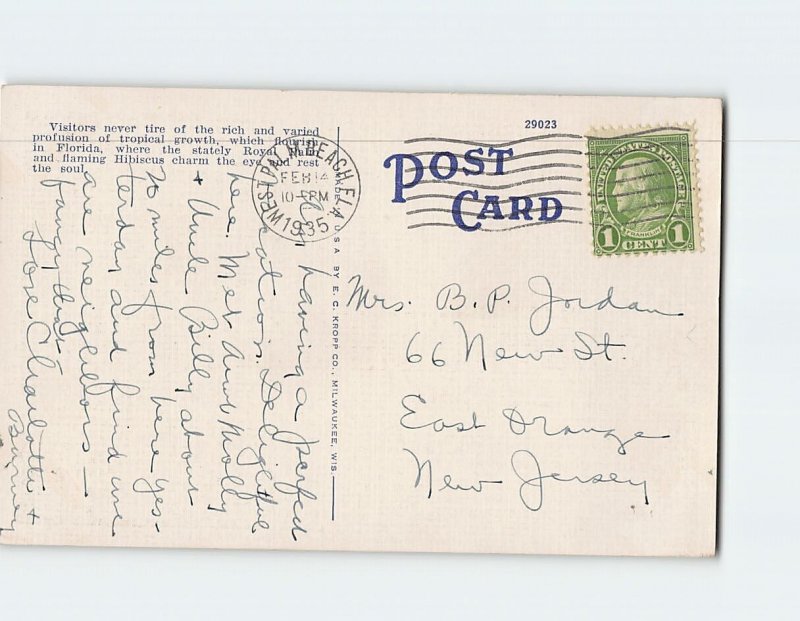 Visitors never tire of the rich and varied
profusion of tropical growth, which flourish
in Florida, where the stately Royal Palm
and flaming Hibiscus charm the eye and rest
the soul.
29023
POST
CARD
WEST PALM BEACH FLA.
FEB 14
10-PM
1935
UNITED STATES POSTAGE
FRANKLIN
1 CENT 1
MADE IN U.S.A. BY E. C. KROPP CO., MILWAUKEE, WIS.
having a perfect
vacation. Delightful
here. Met Aunt Molly
+ Uncle Billy about
20 miles from here yes-
terday and find we
are neighbors —
fancy that
Love Charlotte +
Barney
Mrs. B. P. Jordan
66 New St.
East Orange
New Jersey